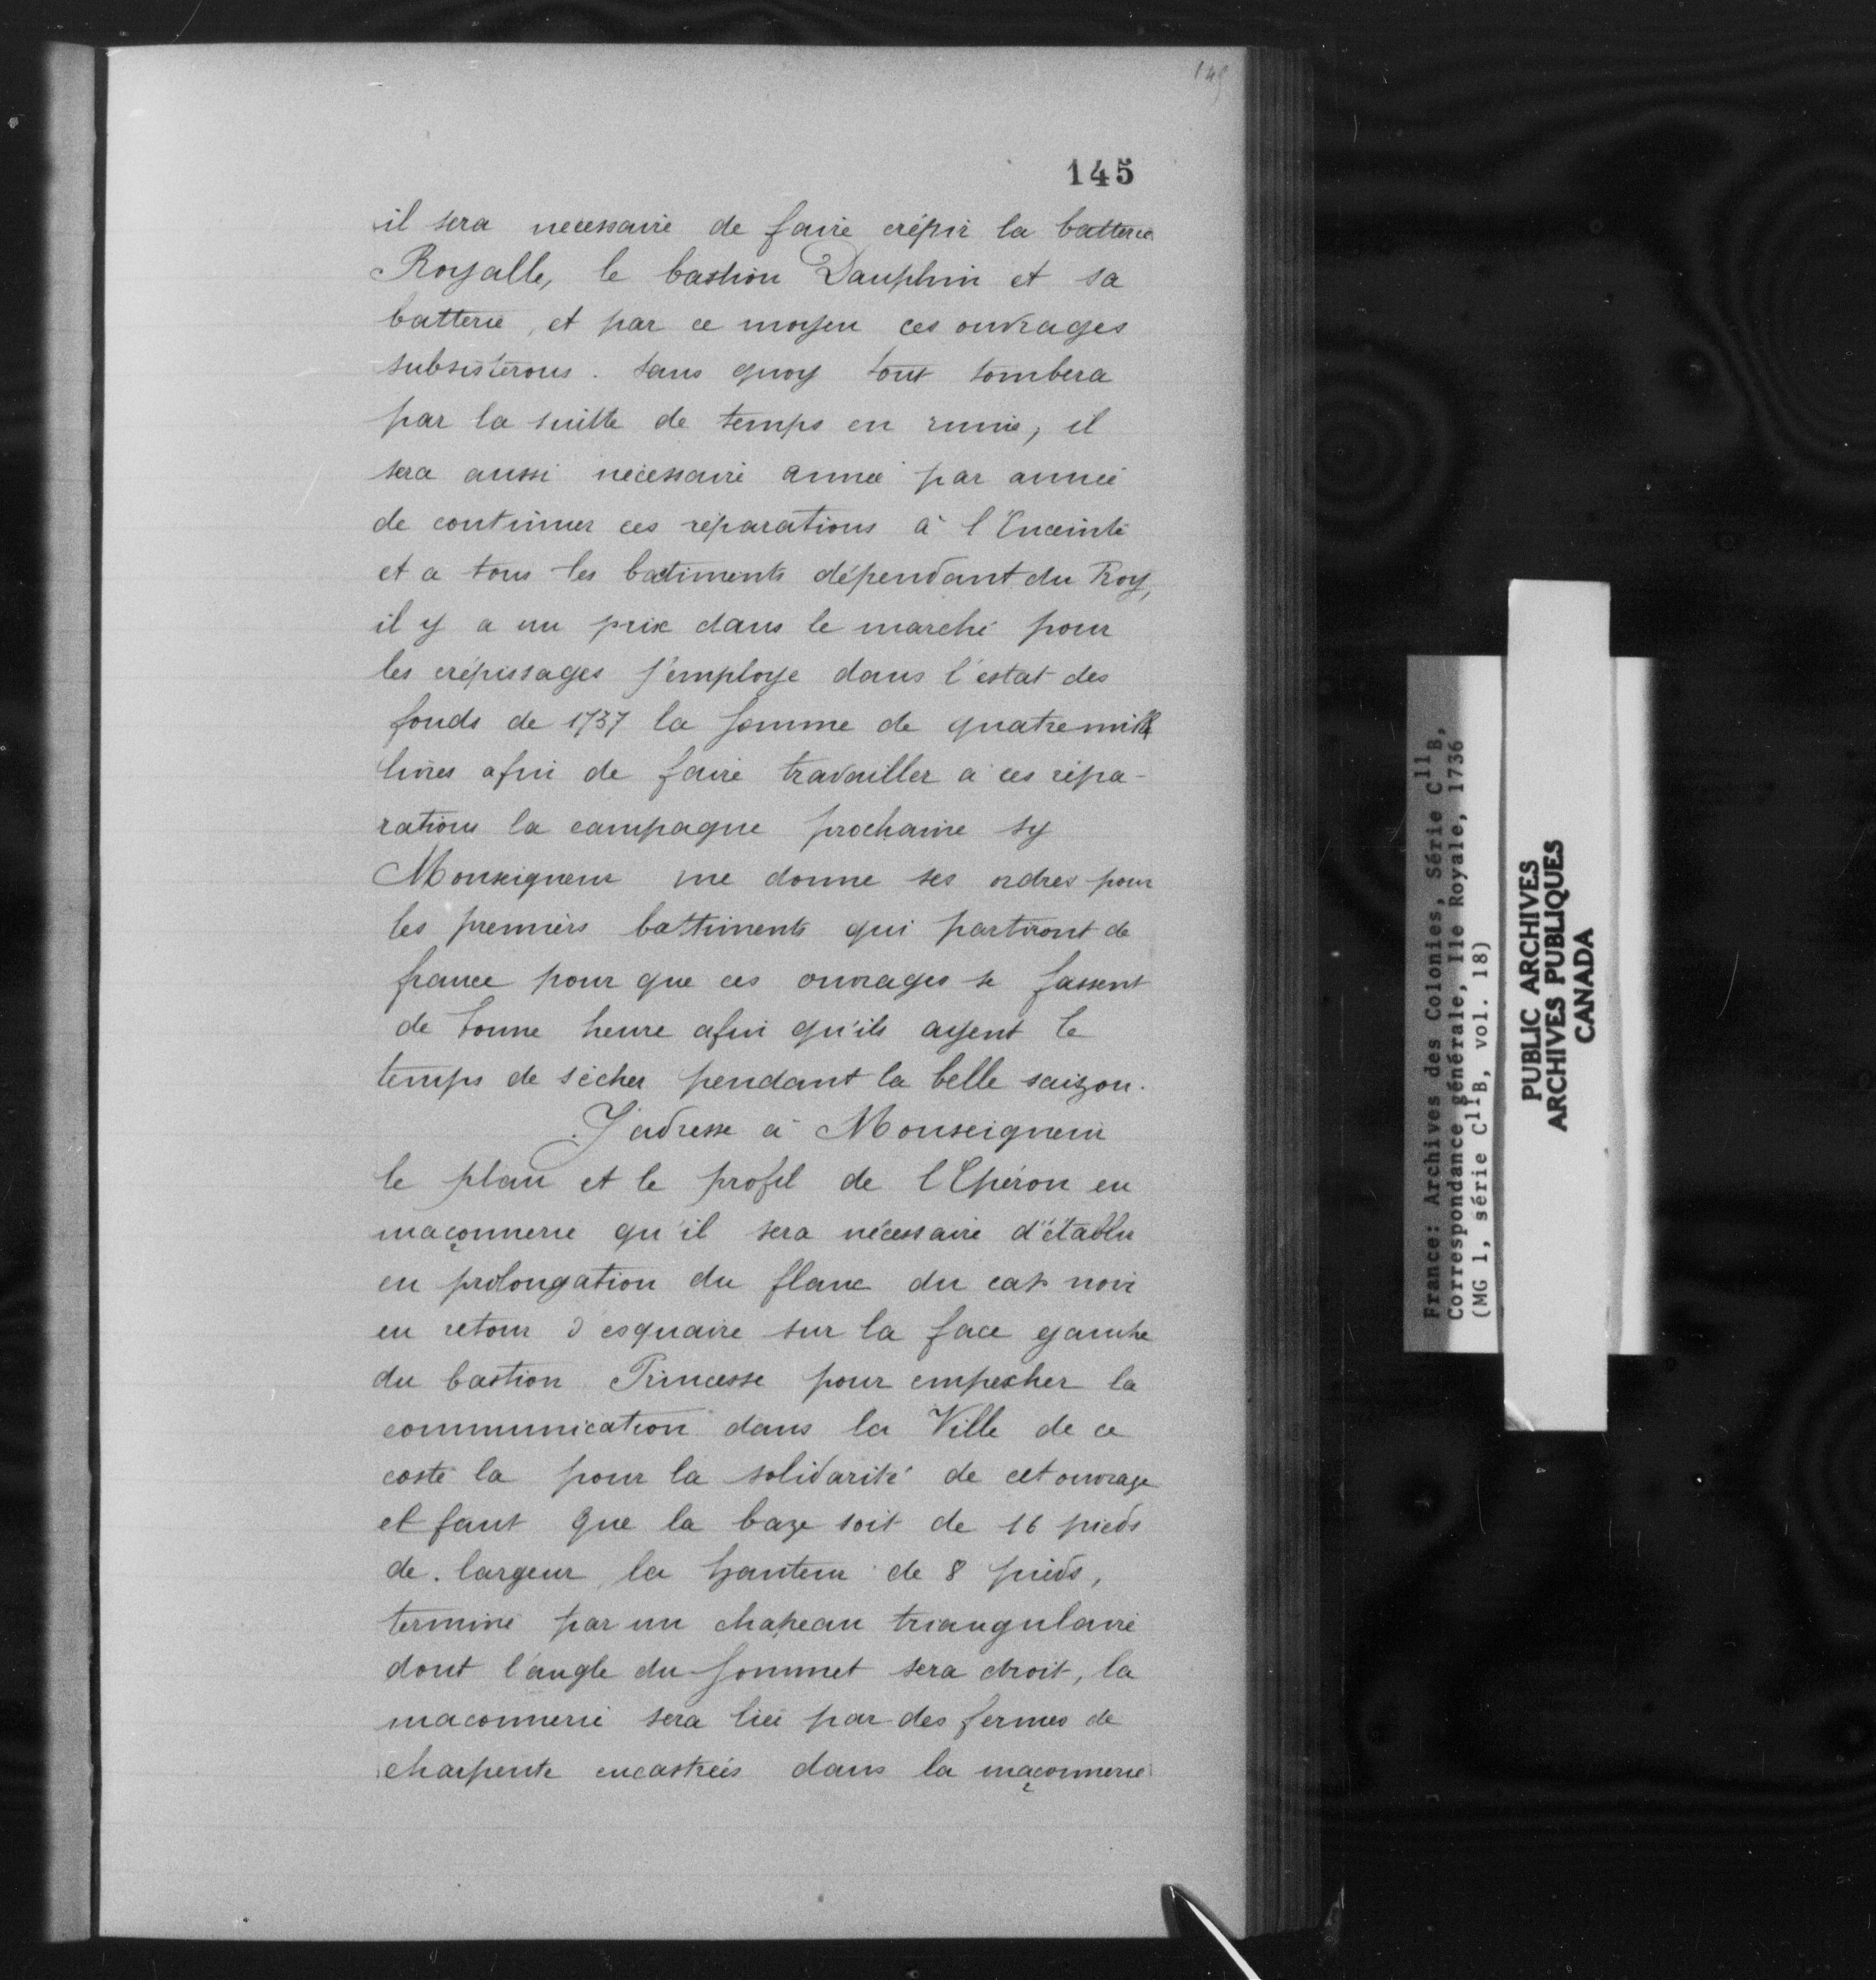 149
145
il sera necessaire de faire crépir la batterie
Royalle, le bastion Dauphin et sa
batterie, et par ce moyen ces ouvrages
subsisterons. sans quoy tout tombera
par la suitte de temps en ruine, il
sera aussi nécessaire année par année
de continuer ces réparations à l'Enceinte
et a tous les batiments dépendant du Roy,
il y a un prix dans le marché pour
les crépissages j'employe dans l'estat des
fonds de 1737 la somme de quatre mille
livres afin de faire travailler a ces répa-
rations la campagne prochaine sy
Monseigneur me donne ses ordres pour
les premiers battiments qui partiront de
france pour que ces ouvrages se fassent
de bonne heure afin qu'ils ayent le
temps de sécher pendant la belle saizon.
J'adresse à Monseigneur
le plan et le profil de l'Eperon en
maçonnerie qu'il sera nécessaire d'établir
en prolongation du flanc du cap noir
en retour d'esquaire sur la face gauche
du bastion Princesse pour empescher la
communication dans la Ville de ce
costé la pour la solidarité de cet ouvrage
il faut que la baze soit de 16 pieds
de largeur, la hauteur de 8 pieds,
terminé par un chapeau triangulaire
dont l'angle du sommet sera droit, la
maconnerie sera liée par des fermes de
charpente encastrées dans la maçonnerie
France: Archives des Colonies, Série C11B,
Correspondance générale, Ile Royale, 1736
(MG 1, série C11B, vol. 18)
PUBLIC ARCHIVES
ARCHIVES PUBLIQUES
CANADA